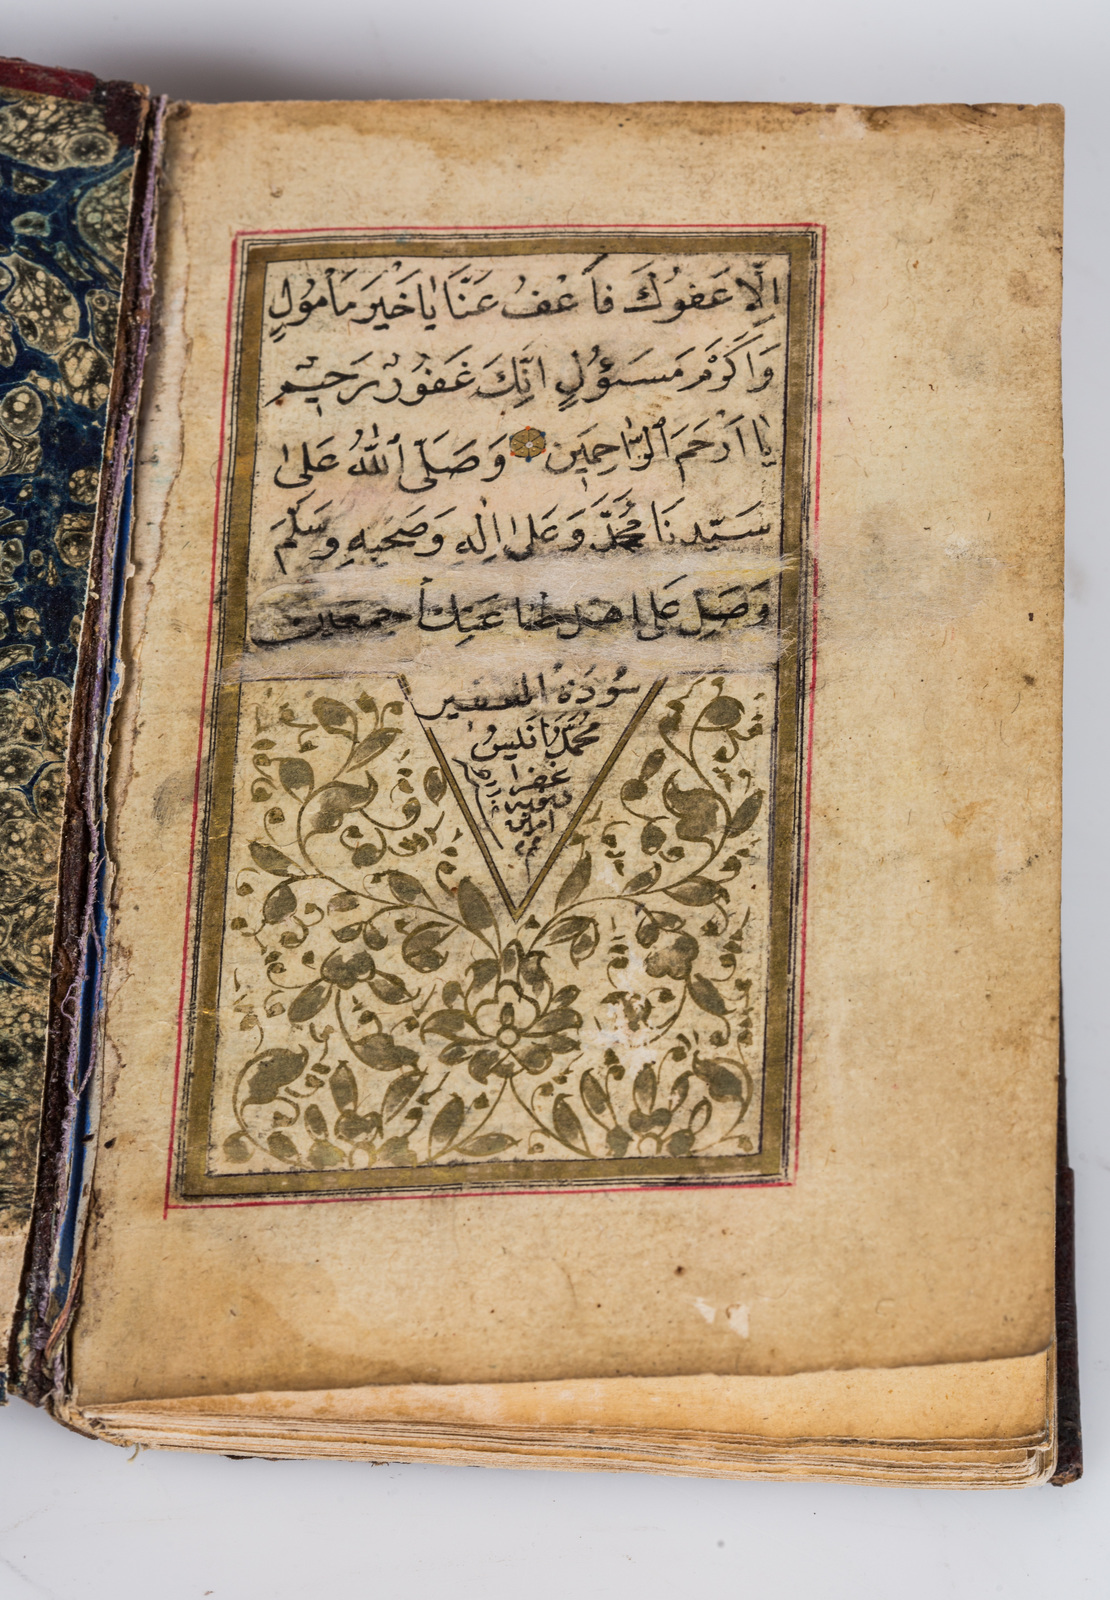 اِلَّا عَفْوُكَ فَاعْفُ عَنَّا يَا خَيْرَ مَأْمُولٍ
وَاَكْرَمَ مَسْئُولٍ اِنَّكَ غَفُورٌ رَحِيمٌ
يَا اَرْحَمَ الرَّاحِمِينَ وَصَلَّى اللهُ عَلَى
سَيِّدِنَا مُحَمَّدٍ وَعَلَى اٰلِهِ وَصَحْبِهِ وَسَلَّمَ
وَصَلِّ عَلَى اجمعين
سُوَّدَهُ الفقير
مُحَمَّد
غفر
ذنوبه
امين